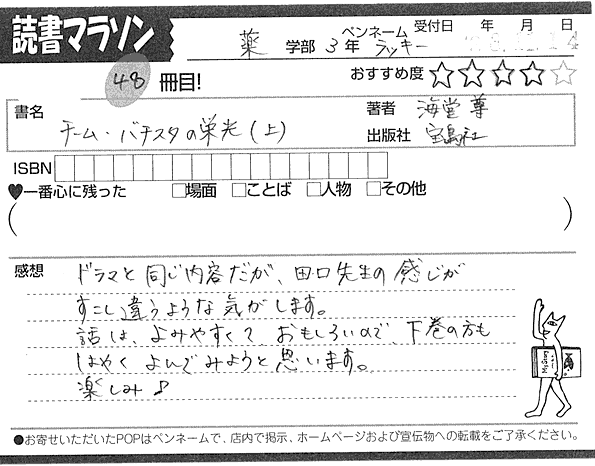 読書マラソン
薬 学部 3年 ペンネーム ラッキー 受付日 年 月 日
48 冊目!
おすすめ度 ☆☆☆☆☆
書名 チーム・バチスタの栄光(上)
著者 海堂 尊
出版社 宝島社
ISBN
♥一番心に残った □場面 □ことば □人物 □その他
( )
感想 ドラマと同じ内容だが、田口先生の感じが
すこし違うような気がします。
話は、よみやすくて、おもしろいので、下巻の方も
はやくよんでみようと思います。
楽しみ♪
●お寄せいただいたPOPはペンネームで、店内で掲示、ホームページおよび宣伝物への転載をご了承ください。